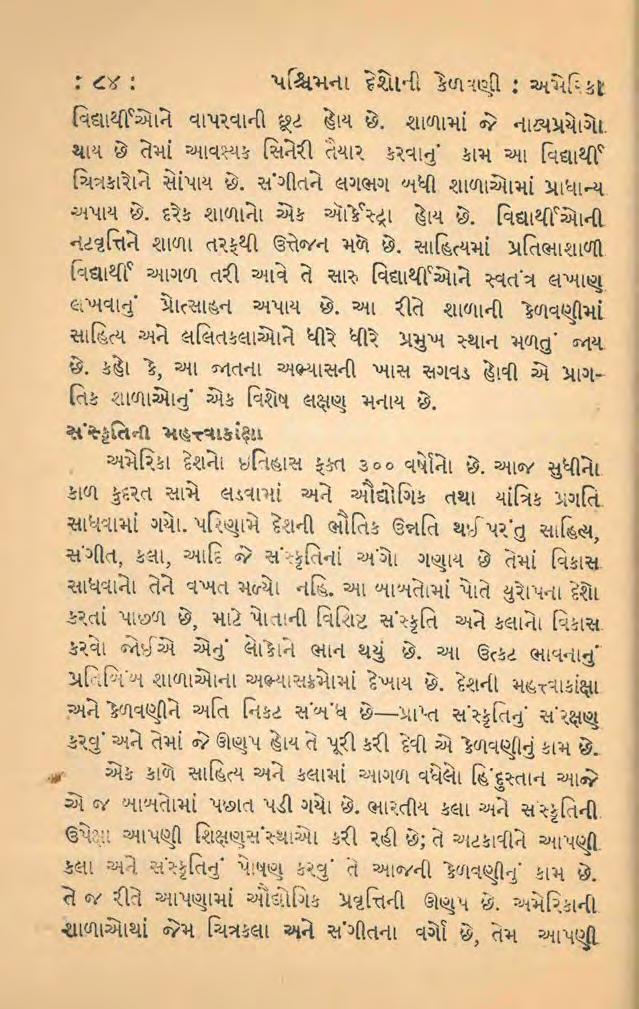 : ૮૪ : પશ્ચિમના દેશોની કેળવણી : અમેરિકા
વિદ્યાર્થીઓને વાપરવાની છૂટ હોય છે. શાળામાં જે નાટ્યપ્રયોગો
થાય છે તેમાં આવશ્યક સિનેરી તૈયાર કરવાનું કામ આ વિદ્યાર્થી
ચિત્રકારોને સોંપાય છે. સંગીતને લગભગ બધી શાળાઓમાં પ્રાધાન્ય
અપાય છે. દરેક શાળાનો એક ઑર્કેસ્ટ્રા હોય છે. વિદ્યાર્થીઓની
નટવૃત્તિને શાળા તરફથી ઉત્તેજન મળે છે. સાહિત્યમાં પ્રતિભાશાળી
વિદ્યાર્થી આગળ તરી આવે તે સારુ વિદ્યાર્થીઓને સ્વતંત્ર લખાણ
લખવાનું પ્રોત્સાહન અપાય છે. આ રીતે શાળાની કેળવણીમાં
સાહિત્ય અને લલિતકલાઓને ધીરે ધીરે પ્રમુખ સ્થાન મળતું જાય
છે. કહો કે, આ જાતના અભ્યાસની ખાસ સગવડ હોવી એ પ્રાગ-
તિક શાળાઓનું એક વિશેષ લક્ષણ મનાય છે.
સંસ્કૃતિની મહત્ત્વાકાંક્ષા
અમેરિકા દેશનો ઇતિહાસ ફક્ત ૩૦૦ વર્ષોનો છે. આજ સુધીનો
કાળ કુદરત સામે લડવામાં અને ઔદ્યોગિક તથા યાંત્રિક પ્રગતિ
સાધવામાં ગયો. પરિણામે દેશની ભૌતિક ઉન્નતિ થઈ પરંતુ સાહિત્ય,
સંગીત, કલા, આદિ જે સંસ્કૃતિનાં અંગો ગણાય છે તેમાં વિકાસ
સાધવાનો તેને વખત મળ્યો નહિ. આ બાબતોમાં પોતે યુરોપના દેશો
કરતાં પાછળ છે, માટે પોતાની વિશિષ્ટ સંસ્કૃતિ અને કલાનો વિકાસ
કરવો જોઈએ એનું લોકોને ભાન થયું છે. આ ઉત્કટ ભાવનાનું
પ્રતિબિંબ શાળાઓના અભ્યાસક્રમોમાં દેખાય છે. દેશની મહત્ત્વાકાંક્ષા
અને કેળવણીને અતિ નિકટ સંબંધ છે—પ્રાપ્ત સંસ્કૃતિનું સંરક્ષણ
કરવું અને તેમાં જે ઊણપ હોય તે પૂરી કરી દેવી એ કેળવણીનું કામ છે.
એક કાળે સાહિત્ય અને કલામાં આગળ વધેલો હિંદુસ્તાન આજે
એ જ બાબતોમાં પછાત પડી ગયો છે. ભારતીય કલા અને સંસ્કૃતિની
ઉપેક્ષા આપણી શિક્ષણસંસ્થાઓ કરી રહી છે; તે અટકાવીને આપણી
કલા અને સંસ્કૃતિનું પોષણ કરવું તે આજની કેળવણીનું કામ છે.
તે જ રીતે આપણામાં ઔદ્યોગિક પ્રવૃત્તિની ઊણપ છે. અમેરિકાની
શાળાઓથાં જેમ ચિત્રકલા અને સંગીતના વર્ગો છે, તેમ આપણી